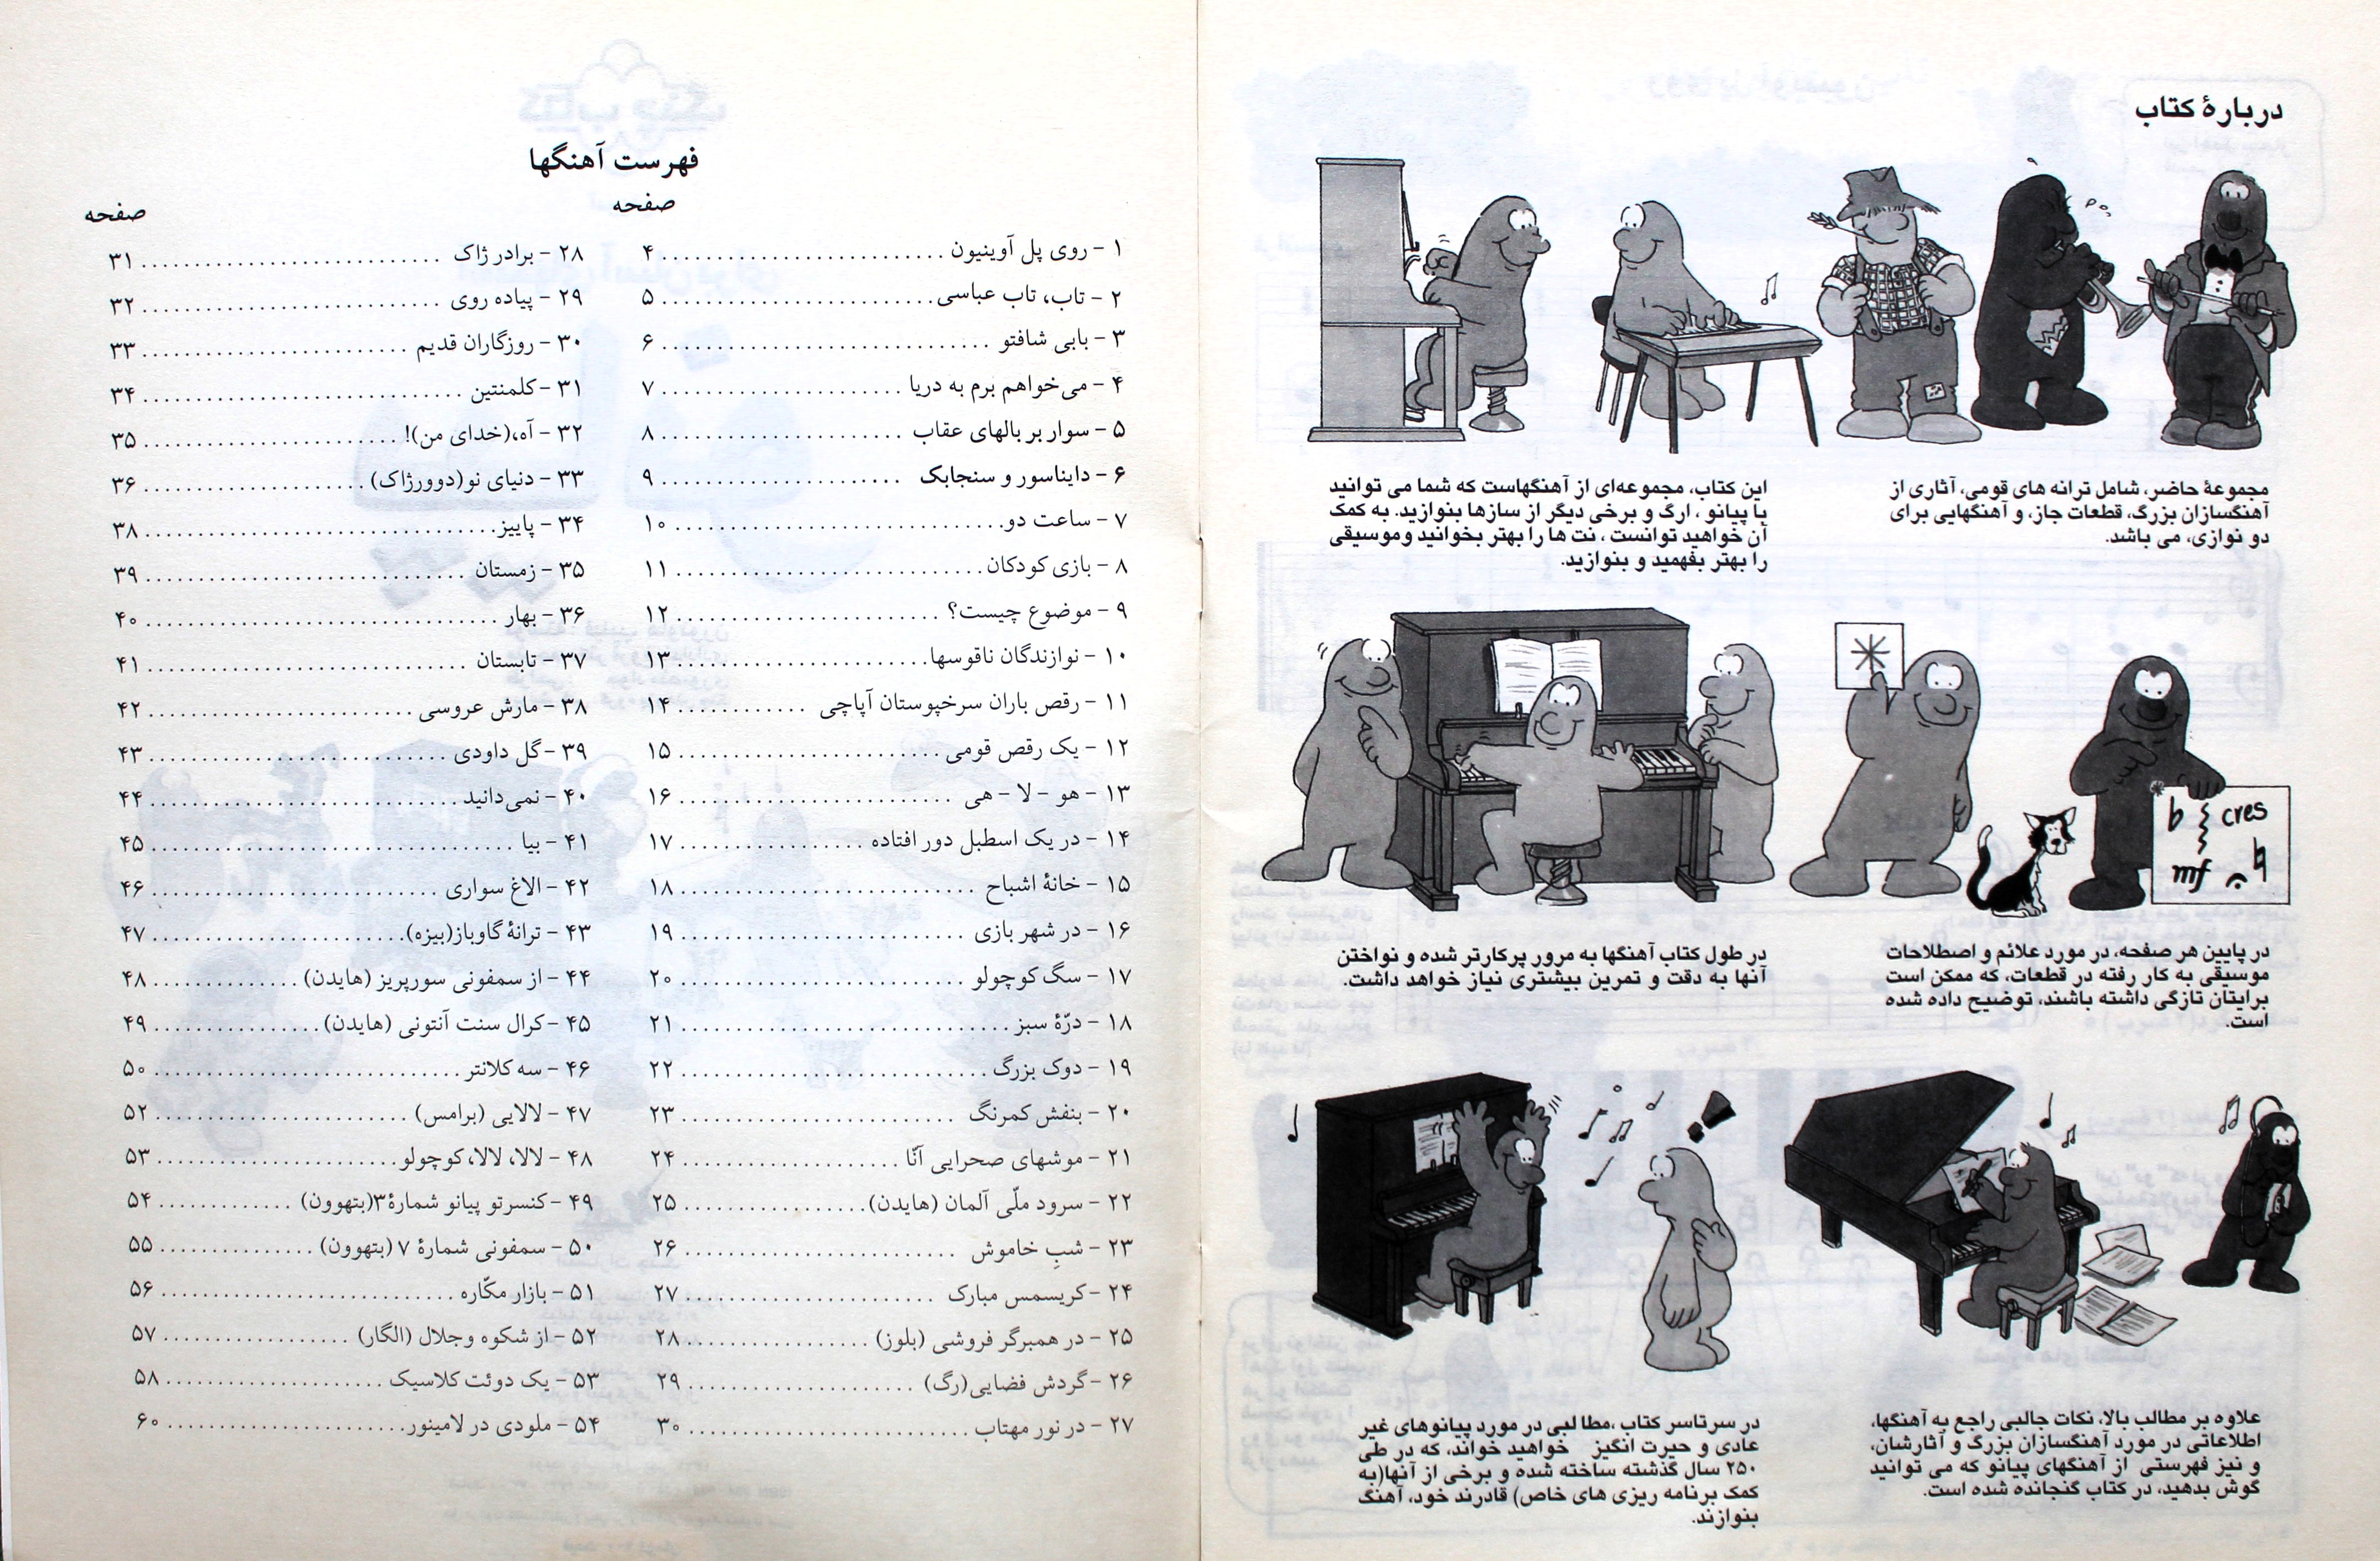 دربارهٔ کتاب
مجموعهٔ حاضر، شامل ترانه های قومی، آثاری از
آهنگسازان بزرگ، قطعات جاز، و آهنگهایی برای
دو نوازی، می باشد.
این کتاب، مجموعه‌ای از آهنگهاست که شما می توانید
با پیانو ، ارگ و برخی دیگر از سازها بنوازید. به کمک
آن خواهید توانست ، نت ها را بهتر بخوانید وموسیقی
را بهتر بفهمید و بنوازید.
cres
mf
در پایین هر صفحه، در مورد علائم و اصطلاحات
موسیقی به کار رفته در قطعات، که ممکن است
برایتان تازگی داشته باشند، توضیح داده شده
است.
در طول کتاب آهنگها به مرور پرکارتر شده و نواختن
آنها به دقت و تمرین بیشتری نیاز خواهد داشت.
علاوه بر مطالب بالا، نکات جالبی راجع به آهنگها،
اطلاعاتی در مورد آهنگسازان بزرگ و آثارشان،
و نیز فهرستی از آهنگهای پیانو که می توانید
گوش بدهید، در کتاب گنجانده شده است.
در سرتاسر کتاب ،مطالبی در مورد پیانوهای غیر
عادی و حیرت انگیز خواهید خواند، که در طی
۲۵۰ سال گذشته ساخته شده و برخی از آنها(به
کمک برنامه ریزی های خاص) قادرند خود، آهنگ
بنوازند.
فهرست آهنگها
صفحه
۱ - روی پل آوینیون ........................ ۴
۲ - تاب، تاب عباسی........................ ۵
۳ - بابی شافتو ........................ ۶
۴ - می‌خواهم برم به دریا ........................ ۷
۵ - سوار بر بالهای عقاب ........................ ۸
۶ - دایناسور و سنجابک ........................ ۹
۷ - ساعت دو........................ ۱۰
۸ - بازی کودکان........................ ۱۱
۹ - موضوع چیست؟ ........................ ۱۲
۱۰ - نوازندگان ناقوسها........................ ۱۳
۱۱ - رقص باران سرخپوستان آپاچی ............ ۱۴
۱۲ - یک رقص قومی ........................ ۱۵
۱۳ - هو - لا - هی ........................ ۱۶
۱۴ - در یک اسطبل دور افتاده ................ ۱۷
۱۵ - خانهٔ اشباح ........................ ۱۸
۱۶ - در شهر بازی ........................ ۱۹
۱۷ - سگ کوچولو ........................ ۲۰
۱۸ - درّهٔ سبز ........................ ۲۱
۱۹ - دوک بزرگ........................ ۲۲
۲۰ - بنفش کمرنگ ........................ ۲۳
۲۱ - موشهای صحرایی آنّا .................... ۲۴
۲۲ - سرود ملّی آلمان (هایدن)................ ۲۵
۲۳ - شبِ خاموش ........................ ۲۶
۲۴ -کریسمس مبارک ........................ ۲۷
۲۵ - در همبرگر فروشی (بلوز) ................ ۲۸
۲۶ -گردش فضایی(رگ) .................... ۲۹
۲۷ - در نور مهتاب ........................ ۳۰
صفحه
۲۸ - برادر ژاک ........................ ۳۱
۲۹ - پیاده روی ........................ ۳۲
۳۰ - روزگاران قدیم ........................ ۳۳
۳۱ -کلمنتین ........................ ۳۴
۳۲ - آه،(خدای من)! ........................ ۳۵
۳۳ - دنیای نو(دوورژاک) .................... ۳۶
۳۴ - پاییز........................ ۳۸
۳۵ - زمستان ........................ ۳۹
۳۶ - بهار ........................ ۴۰
۳۷ - تابستان ........................ ۴۱
۳۸ - مارش عروسی ........................ ۴۲
۳۹ - گل داودی ........................ ۴۳
۴۰ - نمی‌دانید ........................ ۴۴
۴۱ - بیا ........................ ۴۵
۴۲ - الاغ سواری ........................ ۴۶
۴۳ - ترانهٔ گاوباز(بیزه)........................ ۴۷
۴۴ - از سمفونی سورپریز (هایدن) ............ ۴۸
۴۵ -کرال سنت آنتونی (هایدن) .............. ۴۹
۴۶ - سه کلانتر ........................ ۵۰
۴۷ - لالایی (برامس) ........................ ۵۲
۴۸ - لالا، لالا،کوچولو........................ ۵۳
۴۹ -کنسرتو پیانو شمارهٔ ۳(بتهوون) ............ ۵۴
۵۰ - سمفونی شمارهٔ ۷ (بتهوون) .............. ۵۵
۵۱ - بازار مکّاره ........................ ۵۶
۵۲ - از شکوه وجلال (الگار) ................ ۵۷
۵۳ - یک دوئت کلاسیک .................... ۵۸
۵۴ - ملودی در لامینور........................ ۶۰